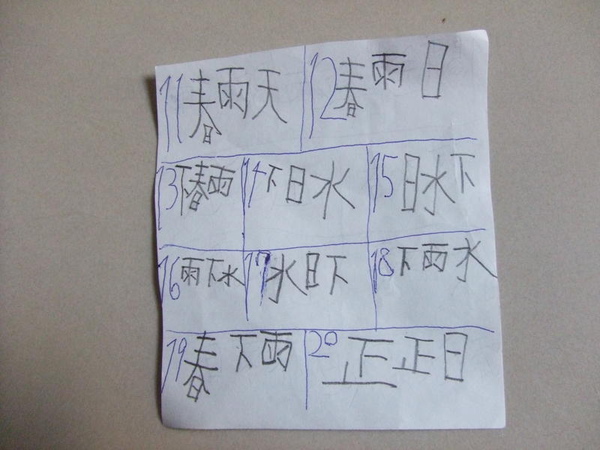 11春雨天 12春雨日
13下春雨 14下日水 15日水下
16雨下水 17水日下 18下雨水
19春下雨 20正正日